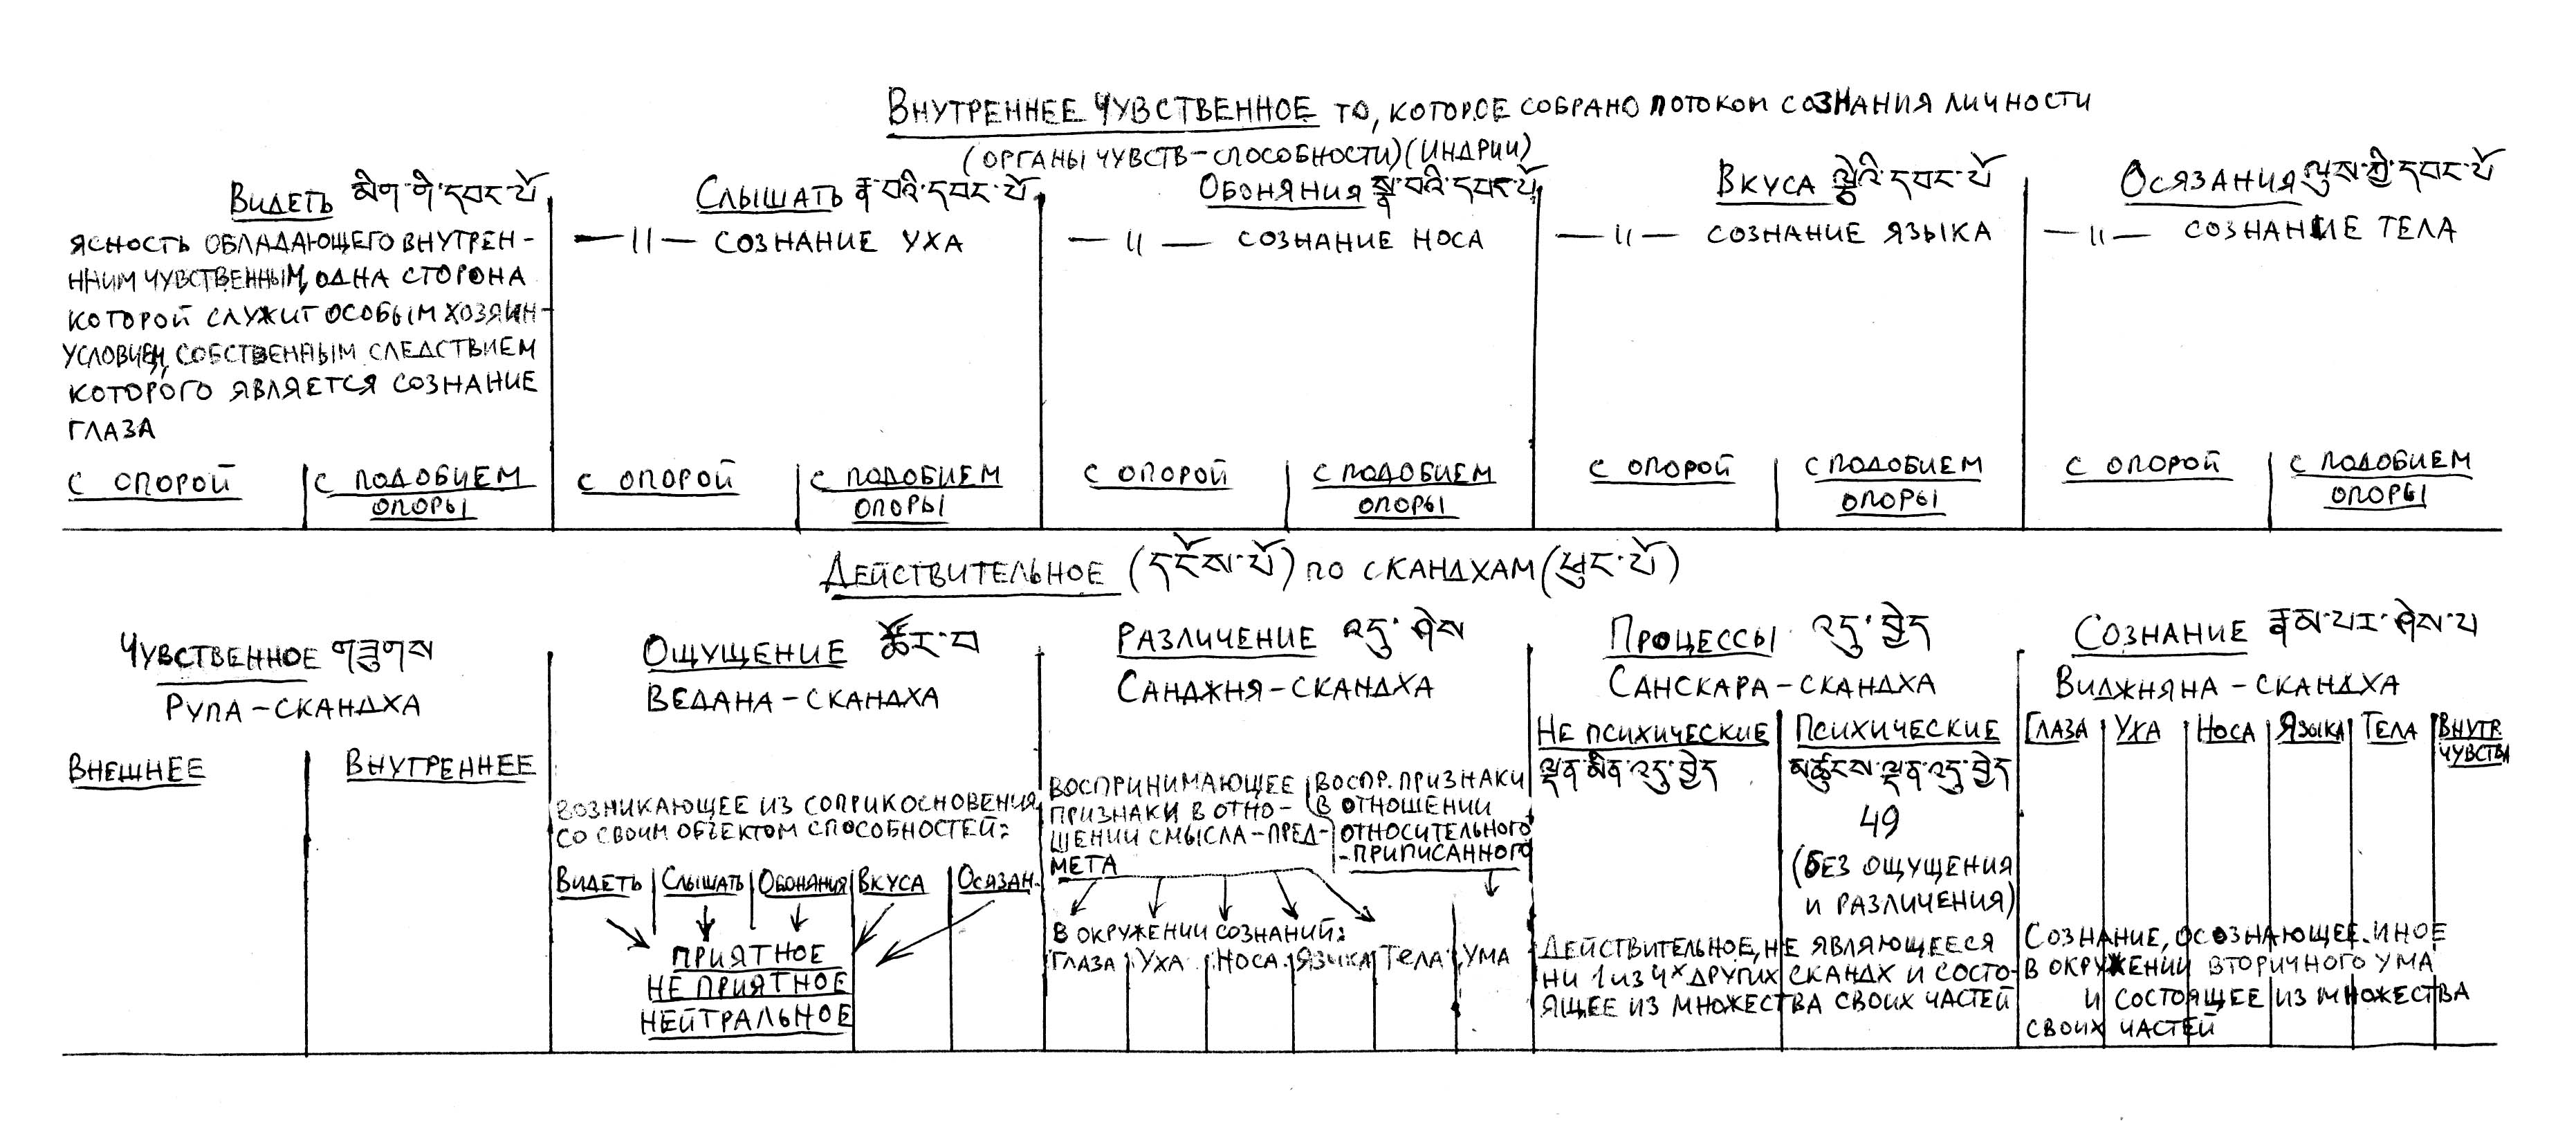 Внутреннее чувственное то, которое собрано потоком сознания личности
(органы чувств-способности) (индрии)
Видеть མིག་གི་དབང་པོ
Ясность обладающего внутрен-
нним чувственным, одна сторона
которой служит особым хозяин-
условием, собственным следствием
которого является сознание
глаза
с опорой
с подобием
опоры
Слышать རྣ་བའི་དབང་པོ
—||— сознание уха
с опорой
с подобием
опоры
Обоняния སྣ་བའི་དབང་པོ
—||— сознание носа
с опорой
с подобием
опоры
Вкуса ལྕེའི་དབང་པོ
—||— сознание языка
с опорой
с подобием
опоры
Осязания ལུས་ཀྱི་དབང་པོ
—||— сознание тела
с опорой
с подобием
опоры
Действительное (དངོས་པོ) по скандхам (ཕུང་པོ)
Чувственное གཟུགས
Рупа-скандха
Внешнее
Внутреннее
Ощущение ཚོར་བ
Ведана-скандха
Возникающее из соприкосновения
со своим объектом способностей:
Видеть
Слышать
Обоняния
Вкуса
Осязан.
Приятное
Не приятное
Нейтральное
Различение འདུ་ཤེས
Санджня-скандха
Воспринимающее
признаки в отно-
шении смысла-пред-
мета
Воспр. признаки
в отношении
относительного
-приписанного
В окружении сознаний:
Глаза Уха Носа Языка Тела Ума
Процессы འདུ་བྱེད
Санскара-скандха
Не психические
ལྡན་མིན་འདུ་བྱེད
Психические
མཚུངས་ལྡན་འདུ་བྱེད
49
(без ощущения
и различения)
Действительное, не являющееся
ни 1 из 4х других скандх и состо-
ящее из множества своих частей
Сознание རྣམ་པར་ཤེས་པ
Виджняна-скандха
Глаза
Уха
Носа
Языка
Тела
Внутр.
чувства
Сознание, осознающее иное
в окружении вторичного ума
и состоящее из множества
своих частей